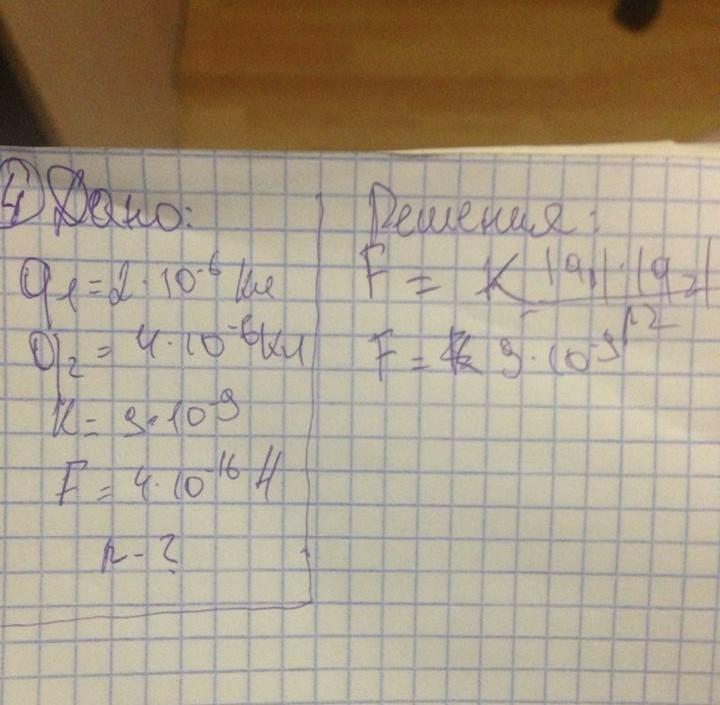 4) Дано:
q₁ = 2·10⁻⁶ Кл
q₂ = 4·10⁻⁶ Кл
K = 9·10⁻⁹
F = 4·10⁻¹⁶ Н
r - ?
Решения:
F = K |q₁|·|q₂| / r²
F = 9·10⁻⁹